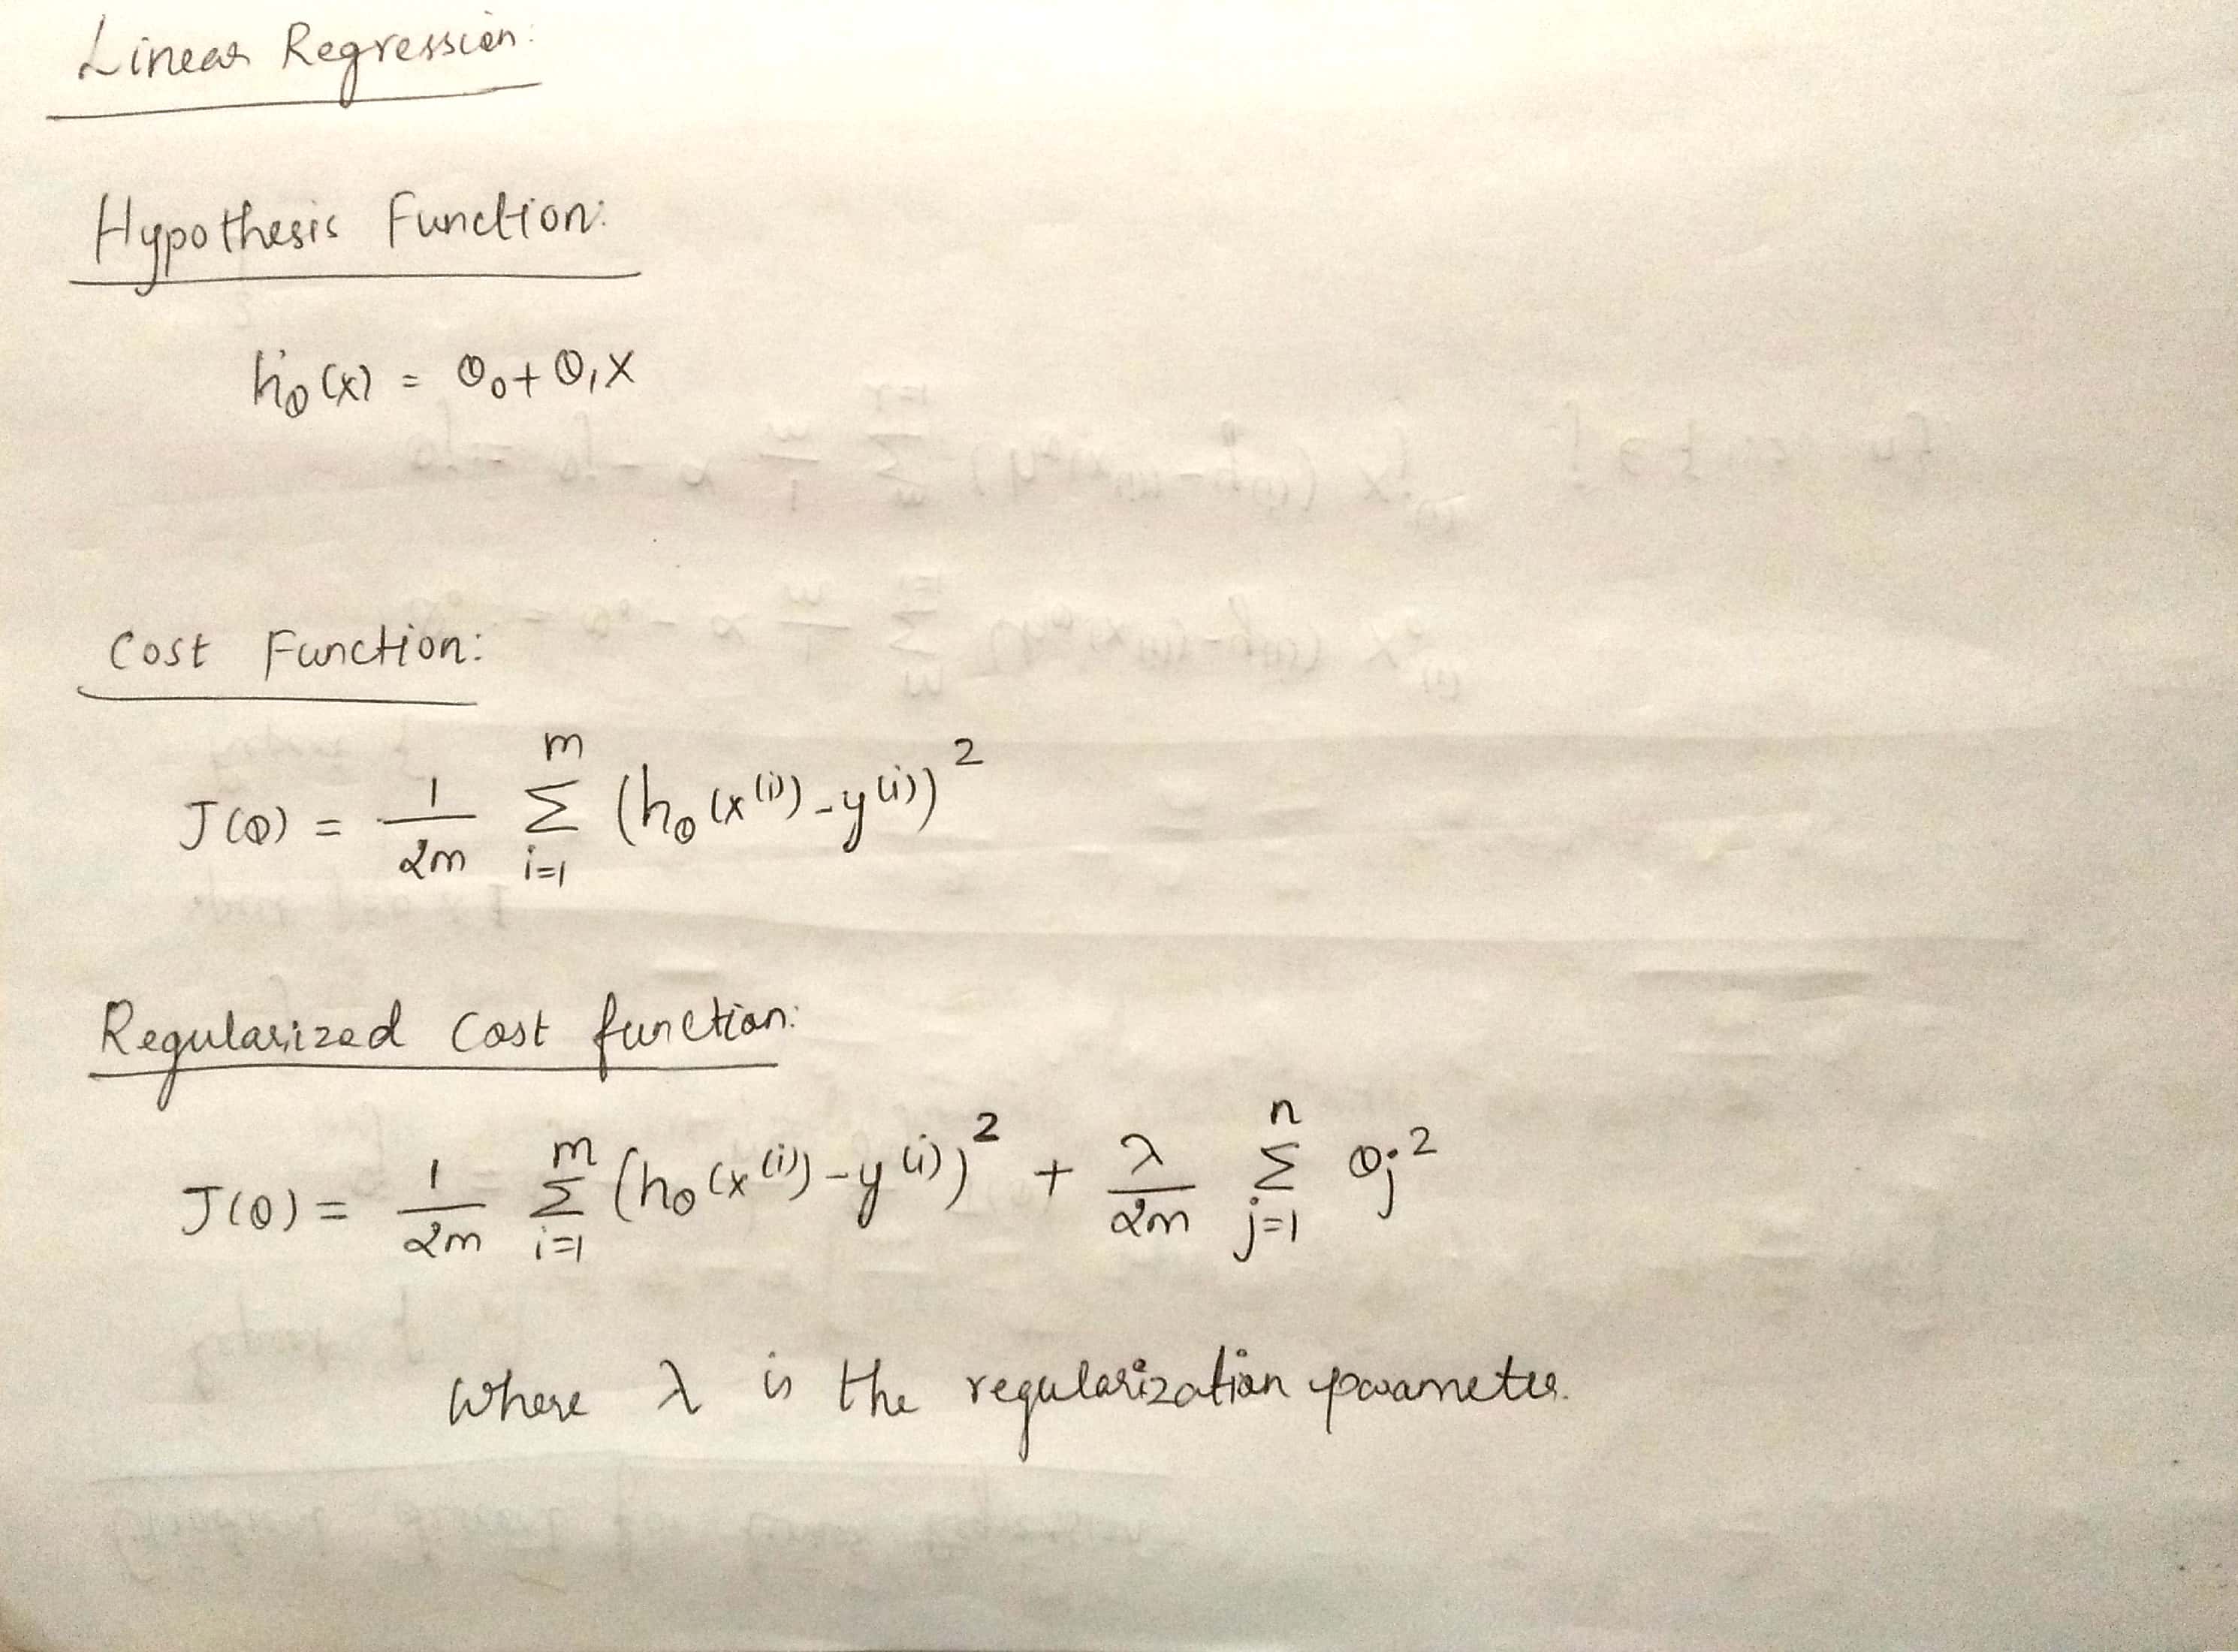 Linear Regression:
Hypothesis Function:
hθ(x) = θ₀ + θ₁x
Cost Function:
J(θ) = 1/2m Σ_{i=1}^{m} (hθ(x⁽ⁱ⁾) - y⁽ⁱ⁾)²
Regularized Cost function:
J(θ) = 1/2m Σ_{i=1}^{m} (hθ(x⁽ⁱ⁾) - y⁽ⁱ⁾)² + λ/2m Σ_{j=1}^{n} θj²
Where λ is the regularization parameter.